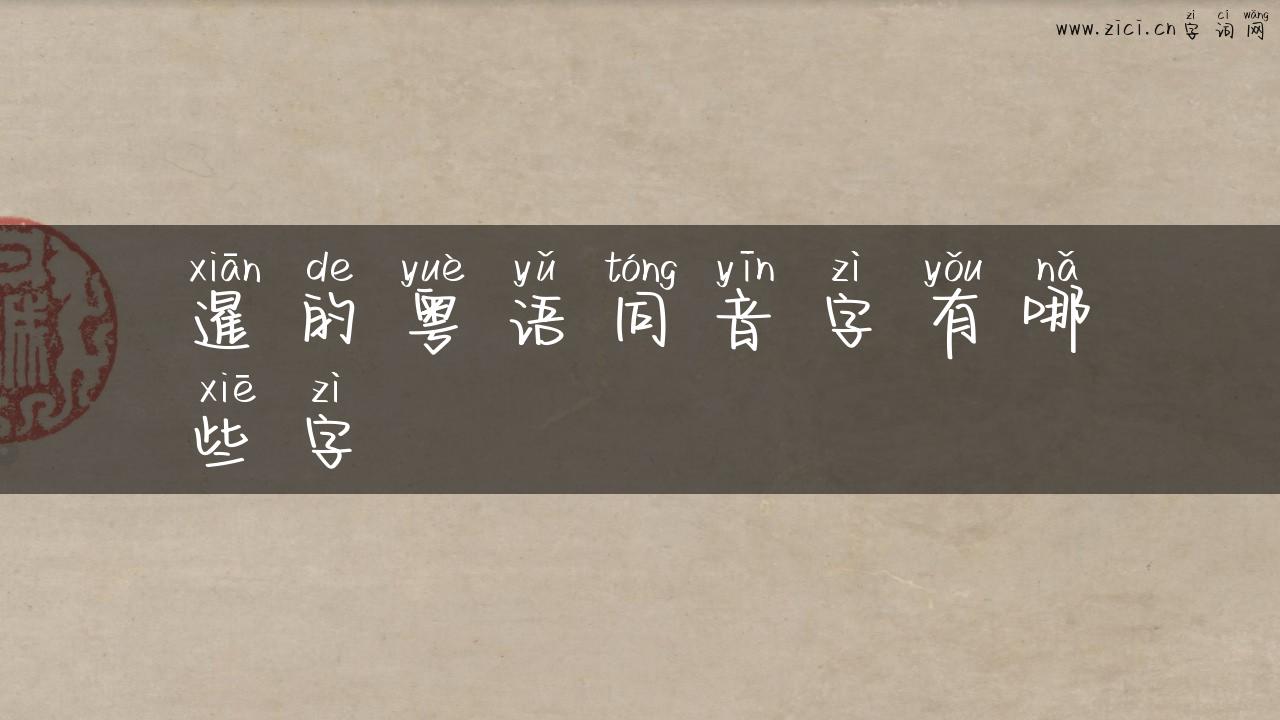 zì cí wǎng
www.zici.cn字词网
xiān de yuè yǔ tóng yīn zì yǒu nǎ
暹的粤语同音字有哪
xiē zì
些字